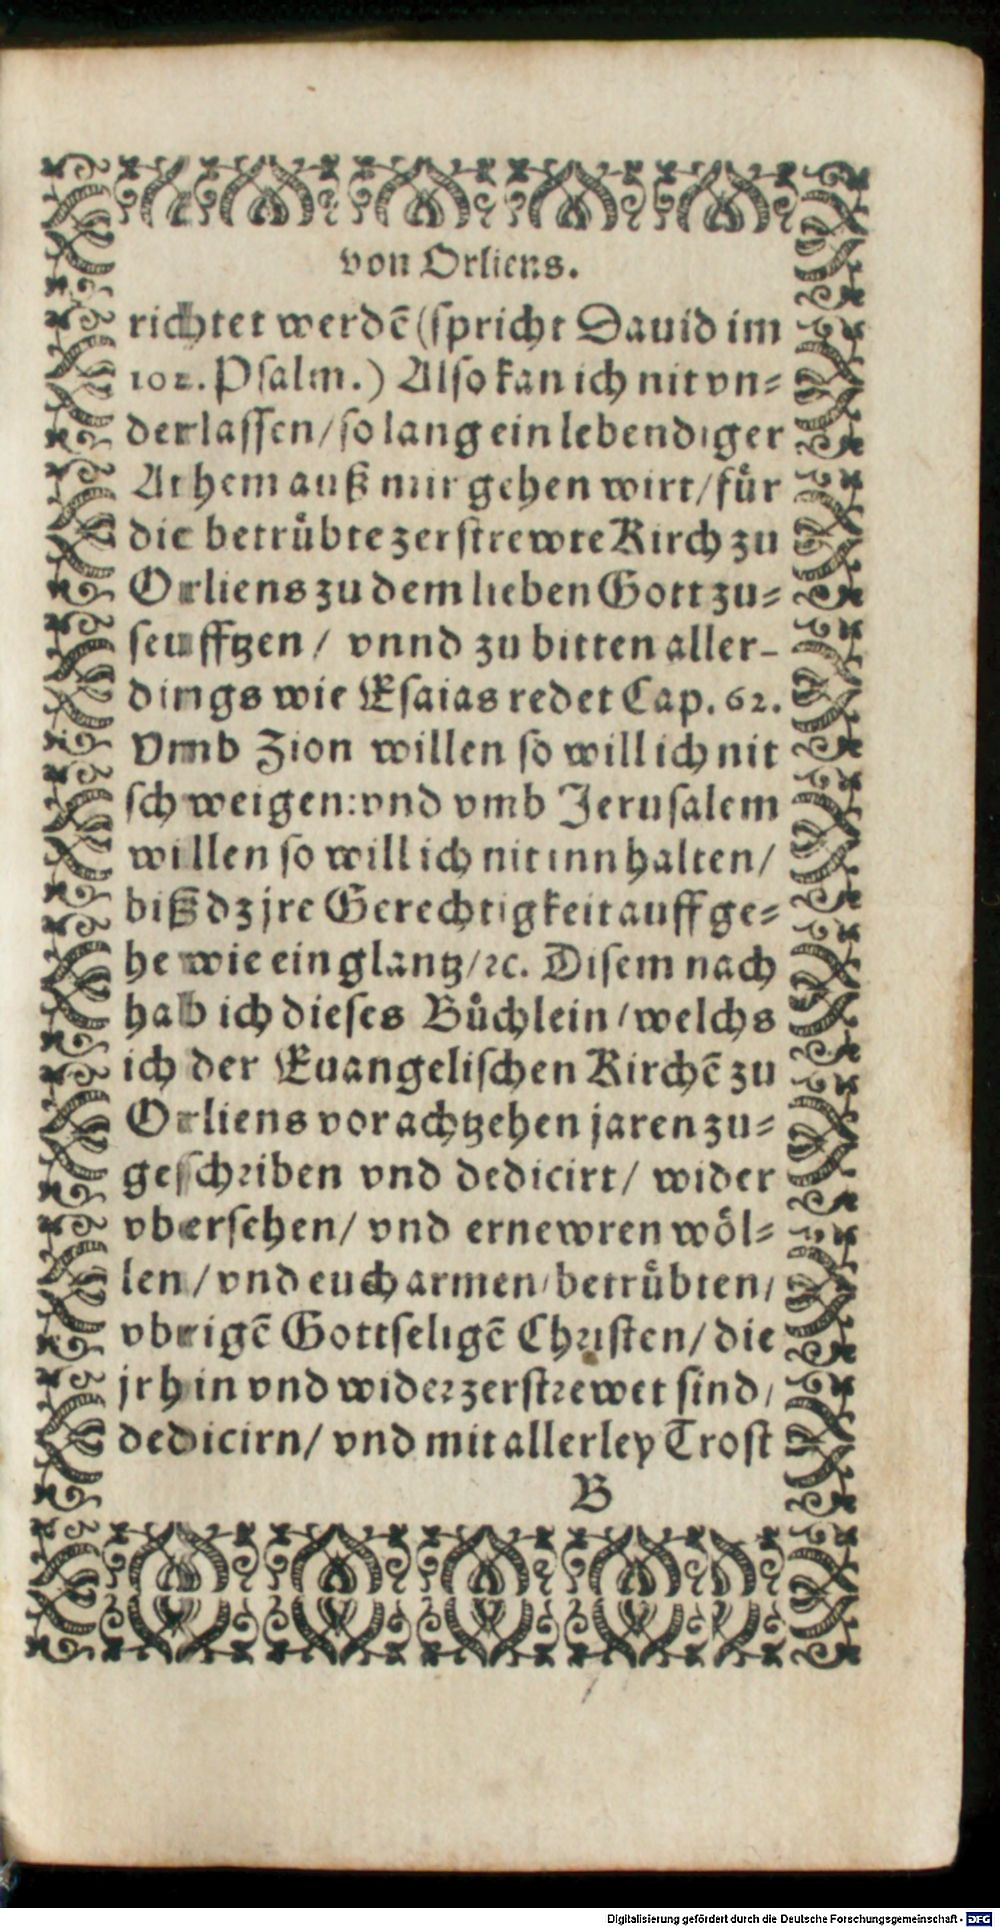 von Orliens.
richtet werdē (spricht Dauid im
102. Psalm.) Also kan ich nit vn-
derlassen/ so lang ein lebendiger
Athem auß mir gehen wirt/ fuͤr
die betruͤbte zerstrewte Kirch zu
Orliens zu dem lieben Gott zu-
seufftzen/ vnnd zu bitten aller-
dings wie Esaias redet Cap. 62.
Vmb Zion willen so will ich nit
schweigen: vnd vmb Jerusalem
willen so will ich nit innhalten/
biß dz jre Gerechtigkeit auffge-
he wie ein glantz/ ꝛc. Disem nach
hab ich dieses Buͤchlein/ welchs
ich der Euangelischen Kirchē zu
Orliens vor achtzehen jaren zu-
geschriben vnd dedicirt/ wider
vbersehen/ vnd ernewren woͤl-
len/ vnd euch armen/ betruͤbten/
vbrigē Gottseligē Christen/ die
jr hin vnd wider zerstrewet sind/
dedicirn/ vnd mit allerley Trost
B
Digitalisierung gefördert durch die Deutsche Forschungsgemeinschaft - DFG